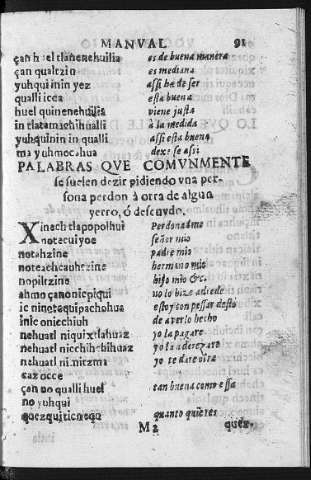 MANVAL 91
çan huel tlanenehuilia es de buena manera
çan qualtzin es mediana
yuhqui inin yez assi ha de ser
qualli icea esta buena
huel quinenehuilia viene justa
in tlatamachihualli a la medida
yuhquinin in qualli assi esta buena
ma yuhmocahua dexese assi
PALABRAS QVE COMVNMENTE
se suelen dezir pidiendo vna per-
sona perdon à otra de algun
yerro, ó descuydo.
Xinech tlapopolhui Perdoname
notecuiyoe señor mio
notahzine padre mio
noteachcauhtzine hermano mio
nopiltzine hijo mio &c.
ahmo çan onicpiqui no lo hize adrede
ic ninotequipachohua estoy con pessar desto
inic onicchiuh de averlo hecho
nehuatl niquixtlahuaz yo la pagarè
nehuatl nicchihchihuaz yo la adereçare
nehuatl nimitzma yo te dare otra
caz occe
çan no qualli huel tan buena como essa
no yuhqui
quezquiticnequi quanto quieres
M2 quez-